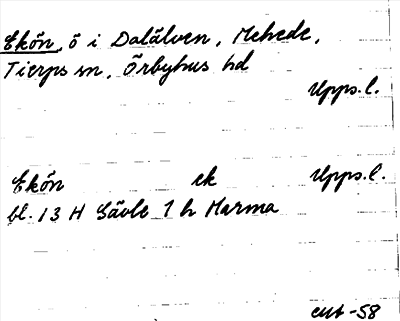 Ekön, ö i Dalälven, Mehede,
Tierps sn, Örbyhus hd
Upps.l.
Ekön ek Upps.l.
bl. 13 H Gävle 1 h Marma
-58